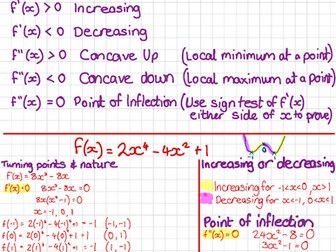 f'(x) > 0 Increasing
f'(x) < 0 Decreasing
f"(x) > 0 Concave Up (Local minimum at a point)
f"(x) < 0 Concave down (Local maximum at a point)
f"(x) = 0 Point of Inflection (Use sign test of f'(x) either side of x to prove)
f(x) = 2x⁴ - 4x² + 1
Turning points & nature
f'(x) = 8x³ - 8x
f'(x)=0 8x³ - 8x = 0
8x(x² - 1) = 0
x = -1, 0, 1
f(-1) = 2(-1)⁴ - 4(-1)² + 1 = -1 (-1, -1)
f(0) = 2(0)⁴ - 4(0)² + 1 = 1 (0, 1)
f(1) = 2(1)⁴ - 4(1)² + 1 = -1 (1, -1)
Increasing or decreasing
Increasing for -1<x<0, x>1
Decreasing for x<-1, 0<x<1
Point of inflection
f"(x)=0 24x² - 8 = 0
3x² - 1 = 0